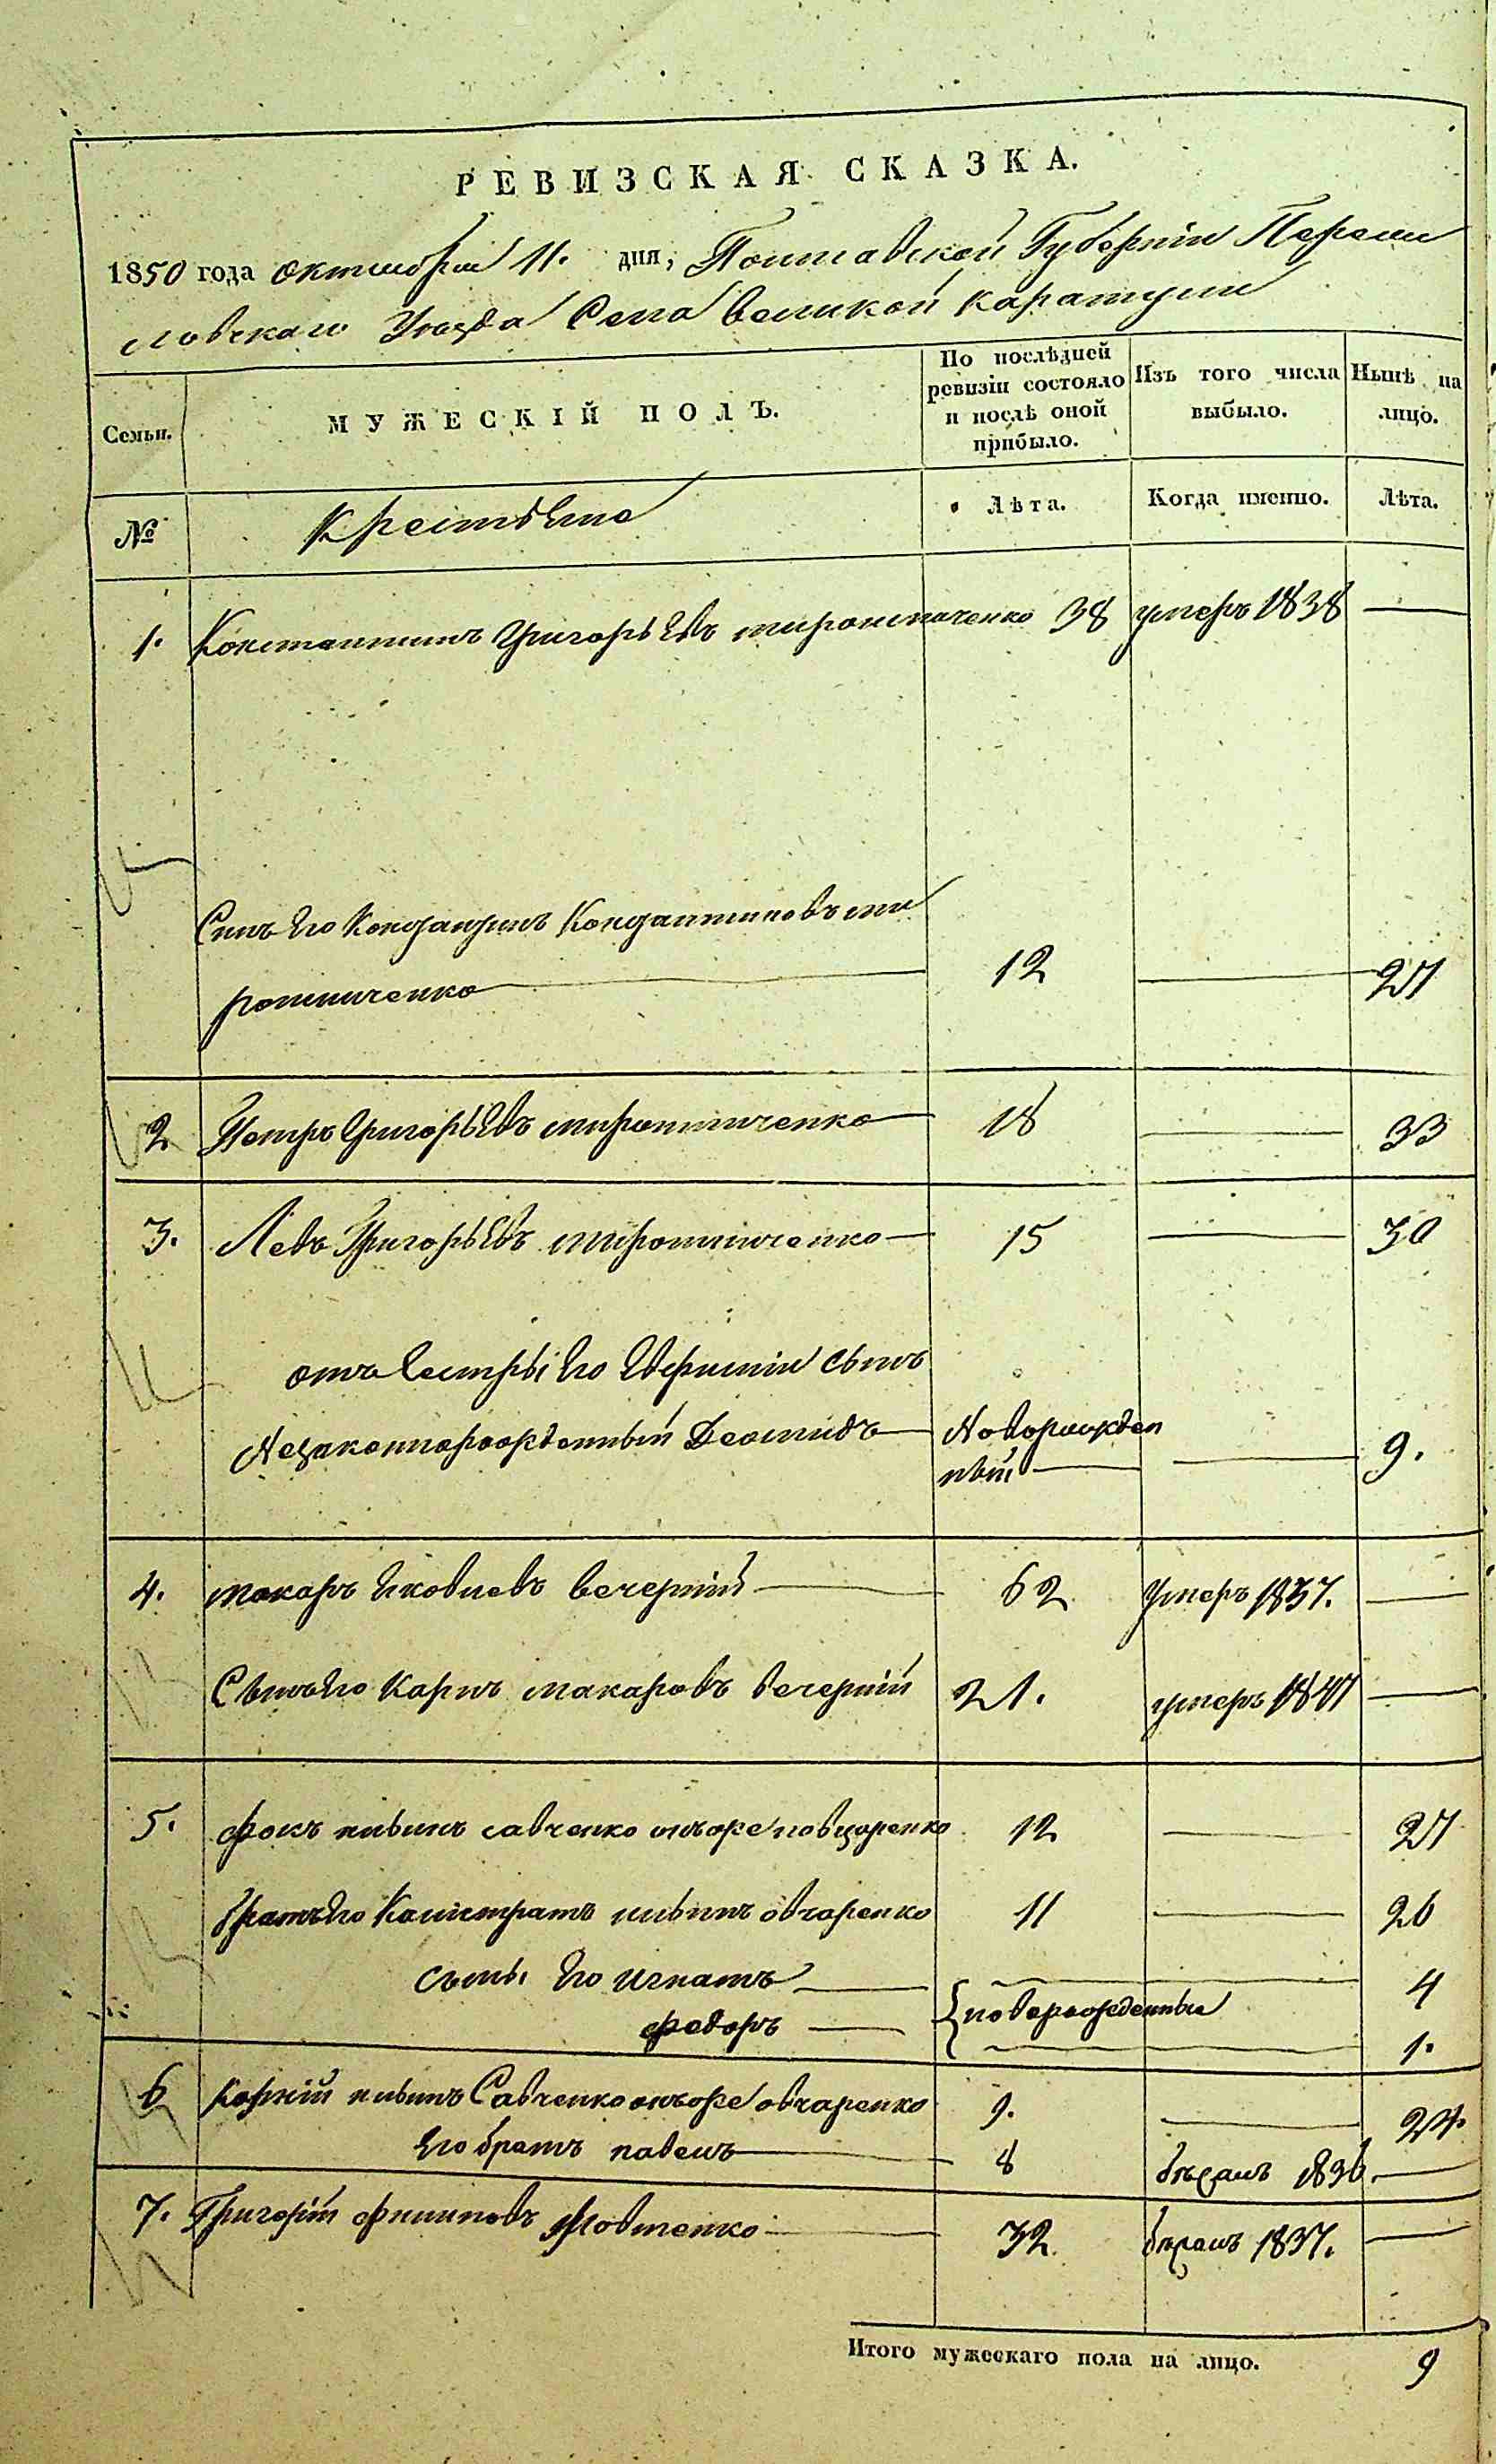 РЕВИЗСКАЯ СКАЗКА.
1850 года октября 11. дня, Полтавской Губерніи Переяс
ловскаго Уезда Села Великой Каратули
Семьи.
МУЖЕСКІЙ ПОЛЪ.
По послѣдней ревизіи состояло и послѣ оной прибыло.
Изъ того числа выбыло.
Нынѣ на лицо.
№
Крестьяне
Лѣта.
Когда именно.
Лѣта.
1. Константинъ Григорьевъ мирошниченко 38 умеръ 1838 —
Синъ Его Константиновъ ми
рошниченко — 12 — 27
2 Петръ Григорьевъ мирошниченко — 18 — 33
3. Левъ Григорьевъ мирошниченко — 15 — 30
отъ Сестры Его сынъ
Незаконнорожденный Деомидъ — Новорожден
ный — — 9.
4. макаръ Яковлевъ вечерній — 62 Умеръ 1837. —
Сынъ Его Карпъ макаровъ вечерній 21. умеръ 1847 —
5. фокъ савченко онъже 12 — 27
братъ Его Калистратъ овчаренко 11 — 26
сыны Его Игнатъ — — 4
федоръ — новорожденные — 1.
6 Корній Савченко онъже овчаренко 9. — 24.
Его братъ павелъ — 8 бѣжалъ 1836. —
7. Григорій филиповъ — 32 бѣжалъ 1837. —
Итого мужескаго пола на лицо. 9